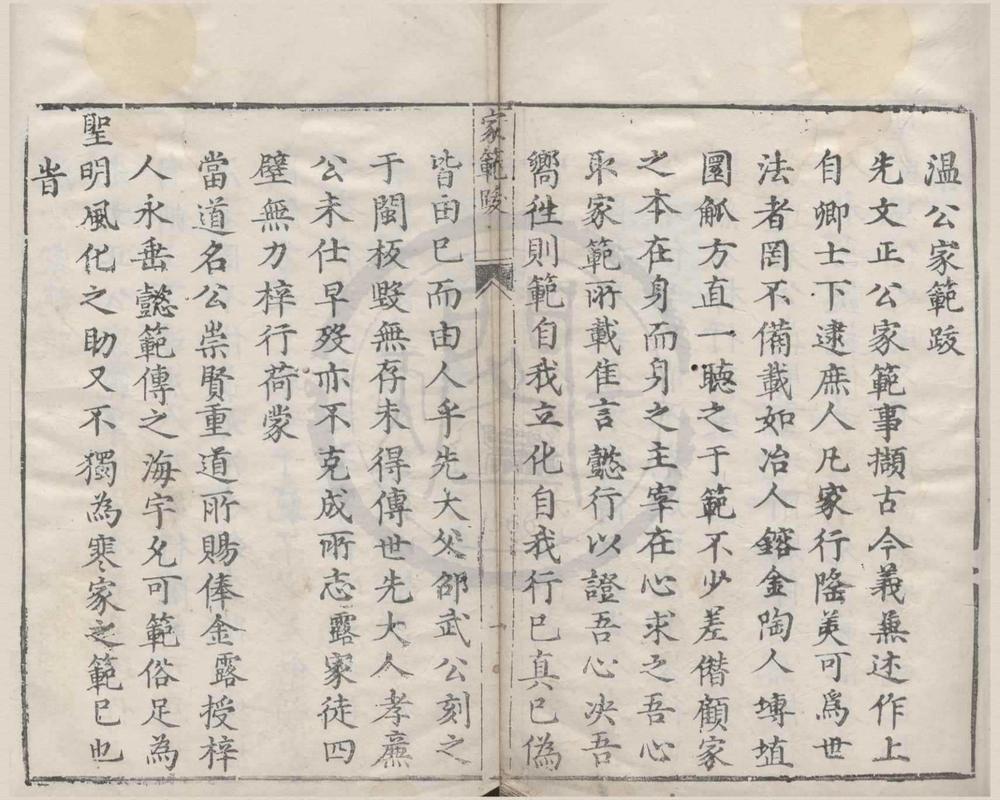 温公家範跋
先文正公家範事擷古今義兼述作上
自卿士下逮庶人凡家行隆美可爲世
法者罔不備載如冶人鎔金陶人塼埴
圜觚方直一聽之于範不少差僭顧家
之本在身而身之主宰在心求之吾心
取家範所載隹言懿行以證吾心决吾
嚮徃則範自我立化自我行已真已偽
家範跋
一
皆由已而由人乎先大父邵武公刻之
于閩板毀無存未得傳世先大人孝亷
公未仕早歿亦不克成所志露家徒四
壁無力梓行荷蒙
當道名公崇賢重道所賜俸金露授梓
人永垂懿範傳之海宇允可範俗足為
聖明風化之助又不獨為寒家之範已也
旹